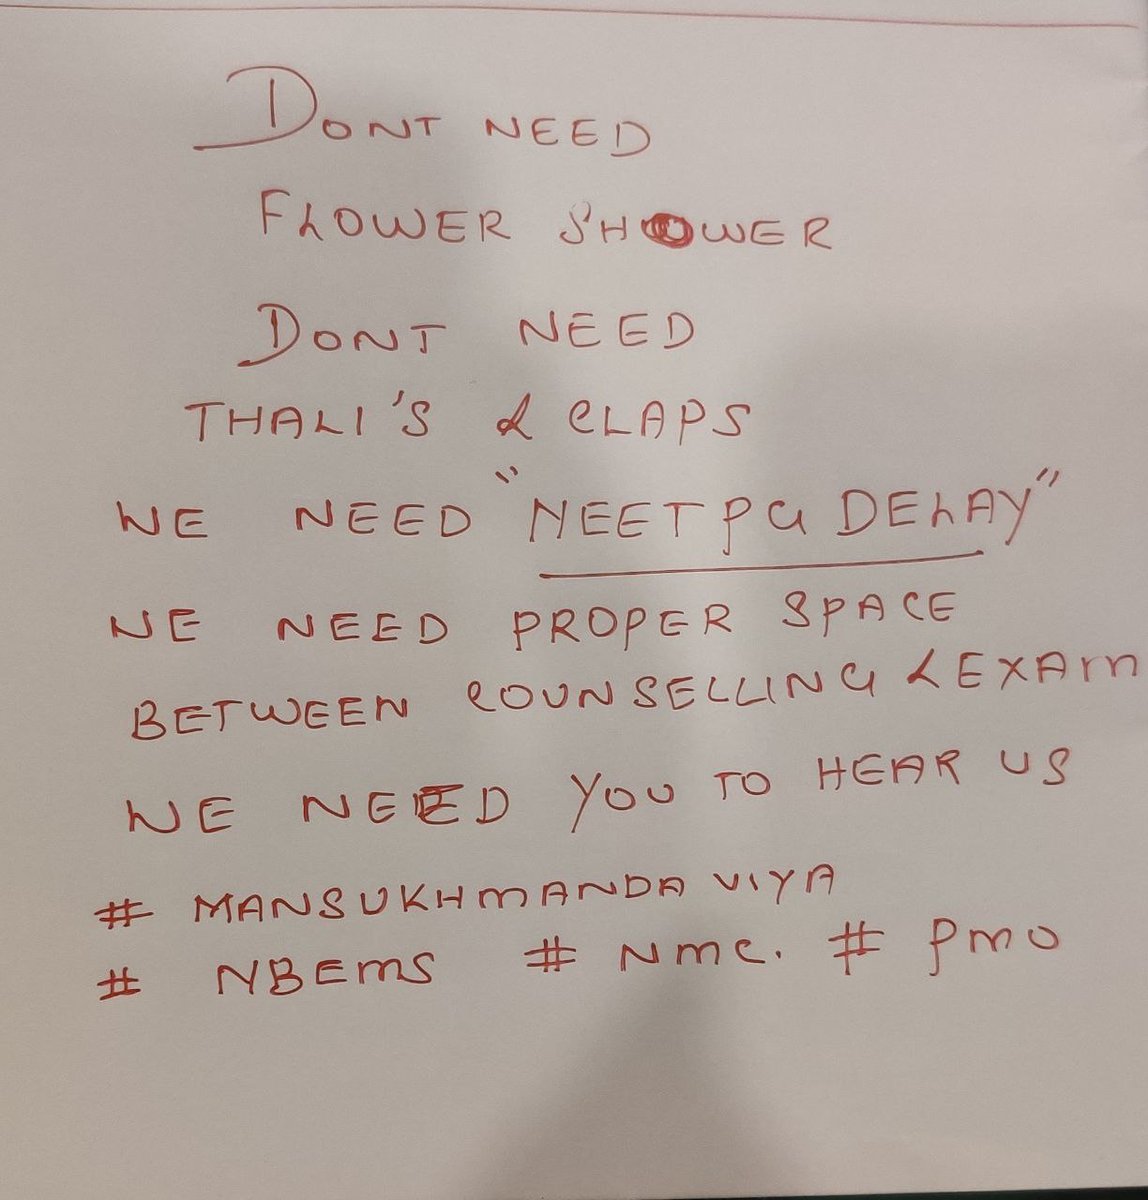 DONT NEED
FLOWER SHOWER
DONT NEED
THALI'S & CLAPS
WE NEED "NEET PG DELAY"
WE NEED PROPER SPACE
BETWEEN COUNSELLING & EXAM
WE NEED YOU TO HEAR US
# MANSUKHMANDAVIYA
# NBEMS # NMC. # PMO